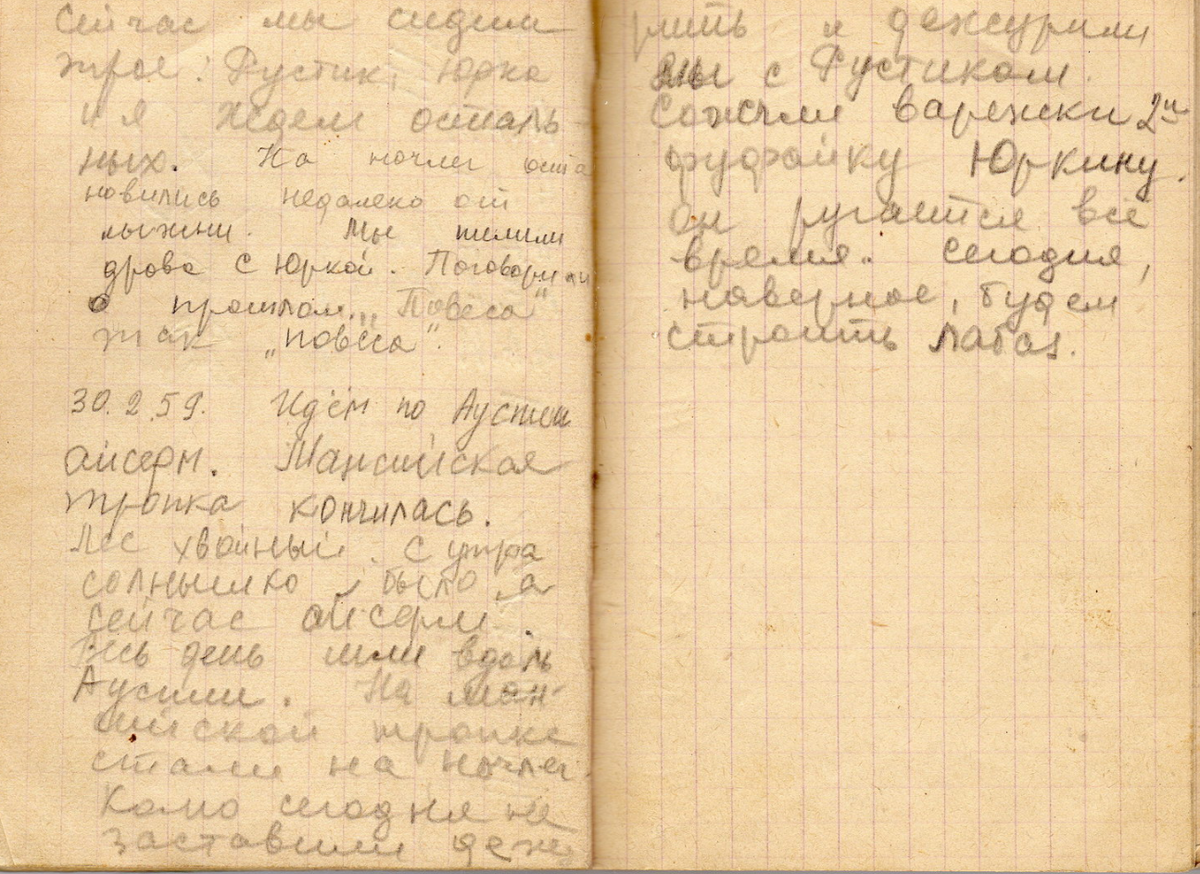 сейчас мы сидим
трое: Рустик, Юрка
и я ждем осталь-
ных. На ночлег оста
новились недалеко от
лыжни. Мы пилили
дрова с Юркой. Поговорили
о прошлом. „Повеса"
так „повеса".
30.2.59. Идём по Ауспии
айсерм. Мансийская
тропка кончилась.
Лес хвойный. С утра
солнышко было, а
сейчас айсерм.
Весь день шли вдоль
Ауспии. На ман-
сийской тропке
стали на ночлег.
Колю сегодня не
заставили деж
рить и дежурили
мы с Рустиком.
Сожгли варежки 2ую
фуфайку Юркину.
Он ругается все
время. Сегодня,
наверное, будем
строить лабаз.